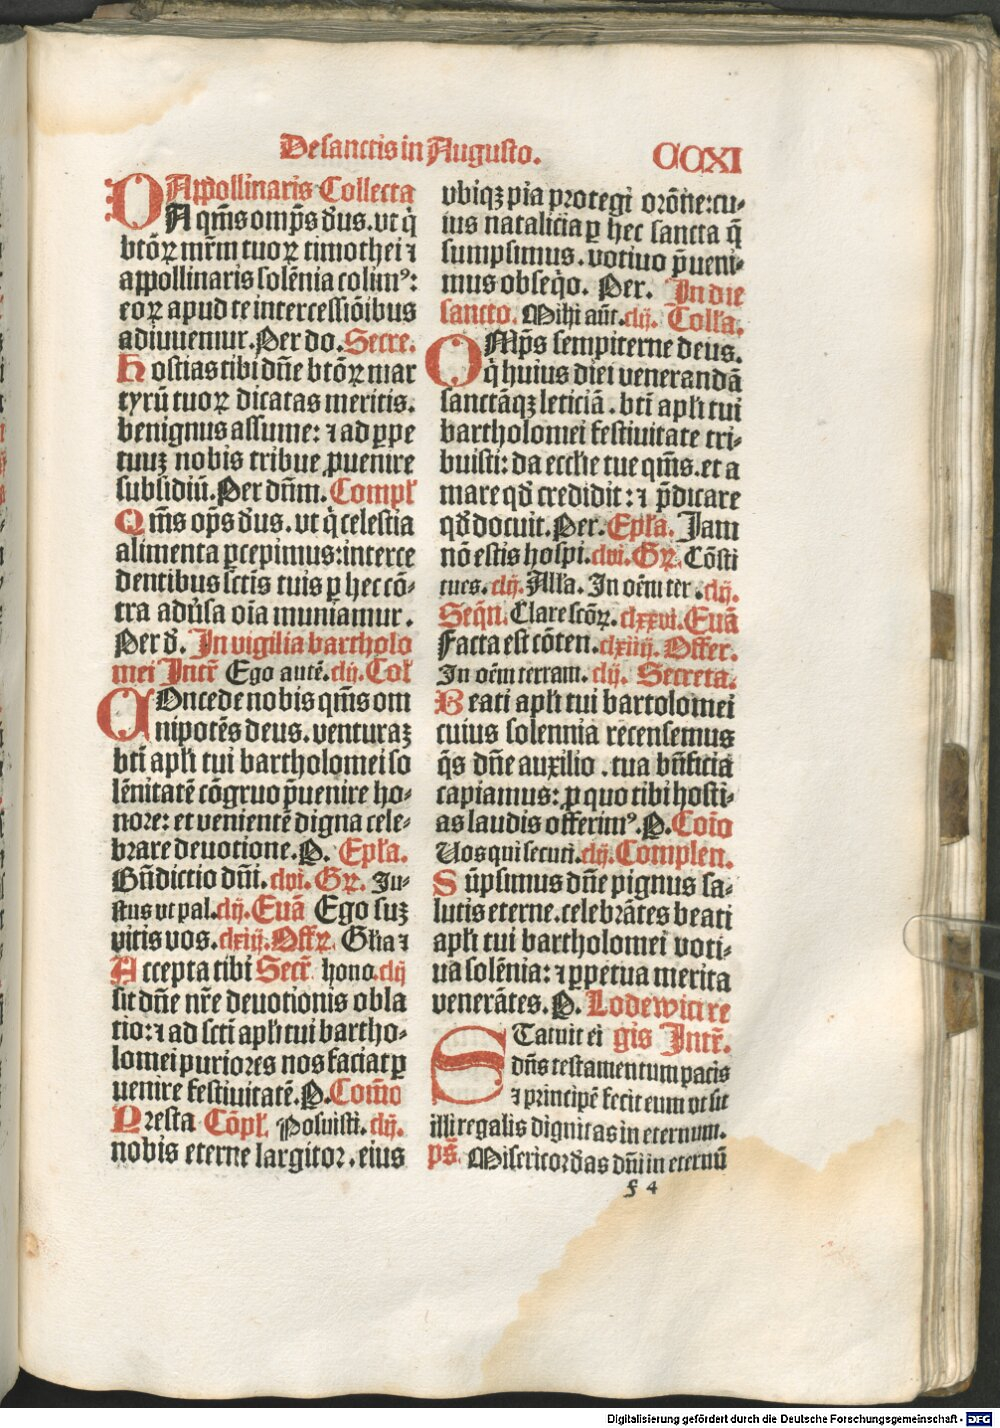 De sanctis in Augusto.
CCXI
Appollinaris Collecta
DA qm̄s omp̄s d̄us. vt q̇
btōꝝ mr̄m tuoꝝ timothei ⁊
appollinaris solēnia colimꝰ:
eoꝝ apud te intercessiōibus
adiuuemur. Per do. Secre.
Hostias tibi dn̄e btōꝝ mar
tyrū tuoꝝ dicatas meritis.
benignus assume: ⁊ ad ꝑpe
tuuꝫ nobis tribue ꝓuenire
subsidiū. Per dn̄m. Compl̄
Qm̄s op̄s d̄us. vt q̇ celestia
alimenta ꝑcepimus: interce
dentibus sctīs tuis ꝑ hec cō-
tra adūsa oīa muniamur.
Per d̄. In vigilia bartholo
mei Intr̄ Ego autē. clij. Col̄
COncede nobis qm̄s om
nipotēs deus. venturaꝫ
btī apl̄i tui bartholomei so
lēnitatē cōgruo p̄uenire ho-
nore: et venientē digna cele-
brare deuotione. P. Ep̄la.
Bn̄dictio dn̄i. clvi. Gꝝ. Iu-
stus vt pal. clij. Euā Ego suꝫ
vitis vos. clxiij. Offꝝ. Gl̄ia ⁊
Accepta tibi Secr̄. hono. clij
sit dn̄e nr̄e deuotionis obla
tio: ⁊ ad sctī apl̄i tui bartho-
lomei puriores nos faciat ꝑ
uenire festiuitatē. P. Com̄o
Presta Cōpl̄. Posuisti. clij.
nobis eterne largitor. eius
vbiqꝫ pia protegi orōne: cu-
ius natalicia ꝑ hec sancta q̄
sumpsimus. votiuo p̄ueni-
mus obseq̇o. Per. In die
sancto. Mihi aūt. clij. Coll̄a.
OMp̄s sempiterne deus.
q̇ huius diei venerandā
sanctāqꝫ leticiā. btī apl̄i tui
bartholomei festiuitate tri-
buisti: da eccl̄ie tue qm̄s. et a
mare qd̄ credidit: ⁊ p̄dicare
qd̄ docuit. Per. Ep̄la. Jam
nō estis hospi. clvi. Gꝝ. Cōsti
tues. clij. Alla. In oēm ter. clij.
Seqn̄. Clare scōꝝ. clxxvi. Euā
Facta est cōten. clxiiij. Offer.
In oēm terram. clij. Secreta.
Beati apl̄i tui bartolomei
cuius solennia recensemus
q̄s dn̄e auxilio. tua bn̄ficia
capiamus: ꝓ quo tibi hosti-
as laudis offerimꝰ. P. Coīo
Uos qui secuti. clij. Complen.
Sūpsimus dn̄e pignus sa-
lutis eterne. celebrātes beati
apl̄i tui bartholomei voti-
ua solēnia: ⁊ ꝑpetua merita
venerātes. P. Lodewici re
STatuit ei gis Intr̄.
dn̄s testamentum pacis
⁊ principē fecit eum vt sit
illi regalis dignitas in eternum.
ps̄. Misericord̄as dn̄i in eternū
f 4
Digitalisierung gefördert durch die Deutsche Forschungsgemeinschaft - DFG